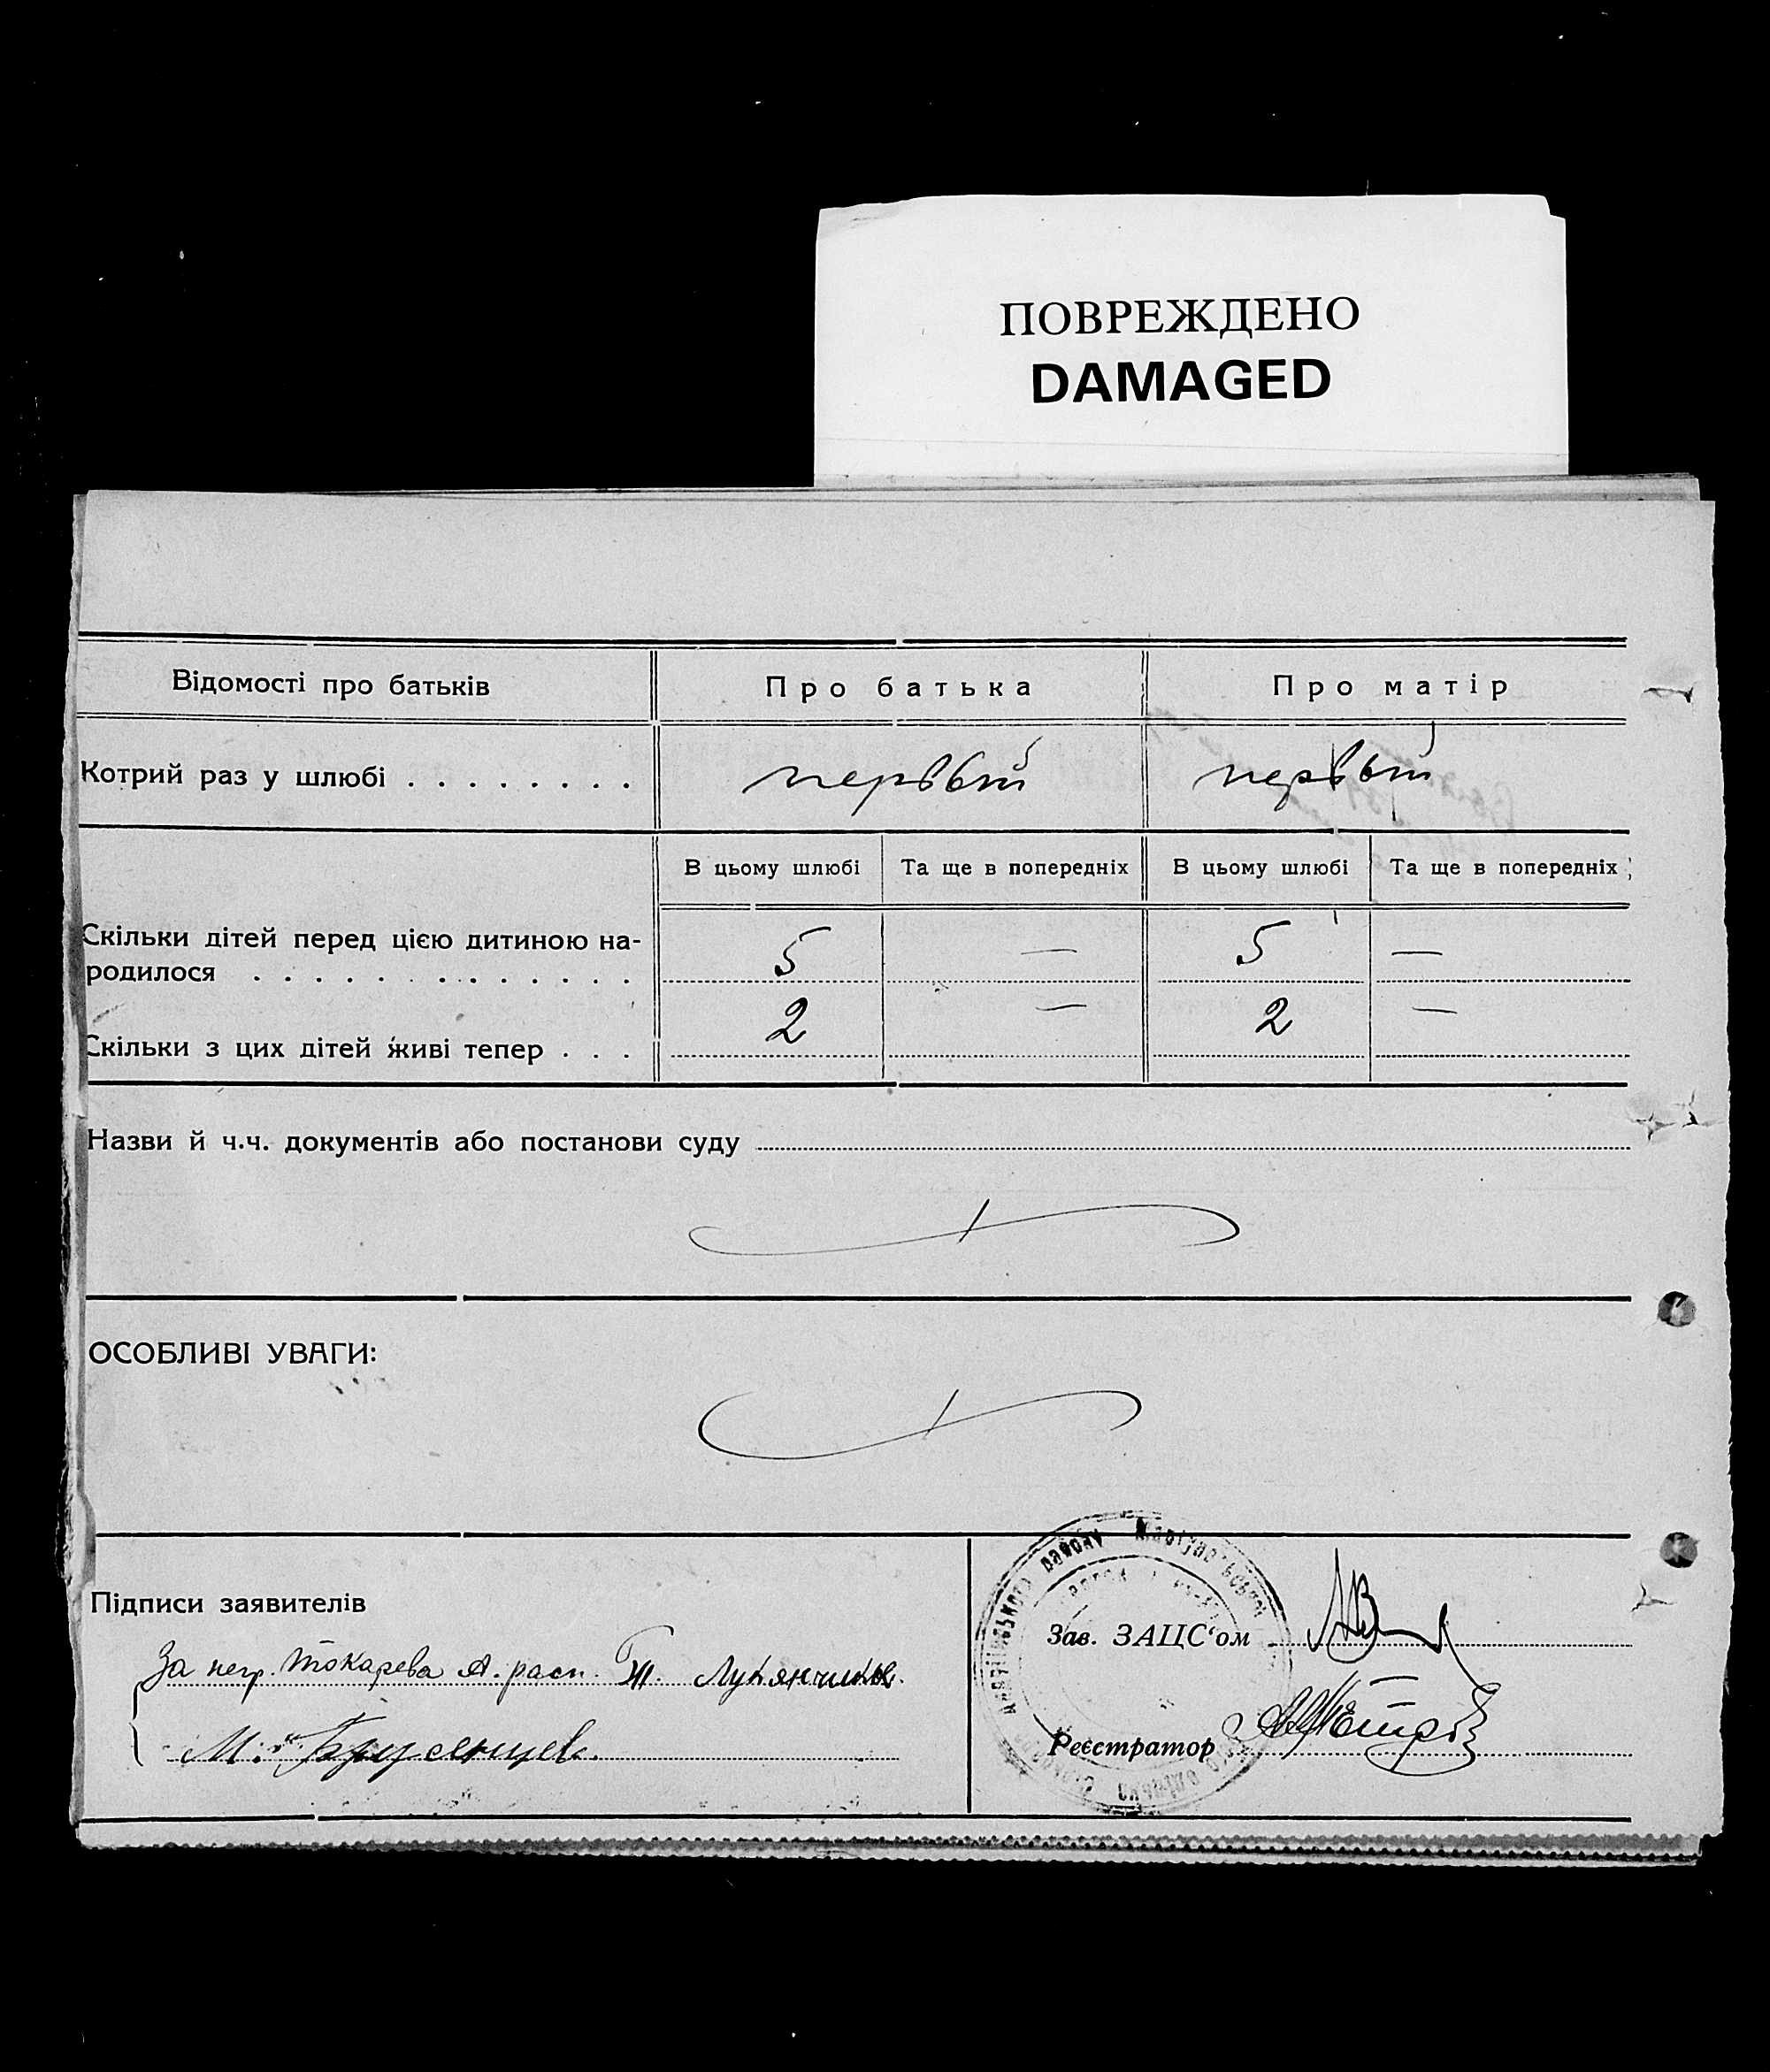 ПОВРЕЖДЕНО
DAMAGED
Відомості про батьків
Про батька
Про матір
Котрий раз у шлюбі . . . . . . . .
первый
первый
В цьому шлюбі
Та ще в попередніх
В цьому шлюбі
Та ще в попередніх
Скільки дітей перед цією дитиною на-
родилося . . . . . . . . . . . . .
5
—
5
—
Скільки з цих дітей живі тепер . . .
2
—
2
—
Назви й ч.ч. документів або постанови суду
ОСОБЛИВІ УВАГИ:
Підписи заявителів
За негр. Токарева А. расп.
М.
району
Зав. ЗАЦС‘ом
Реєстратор